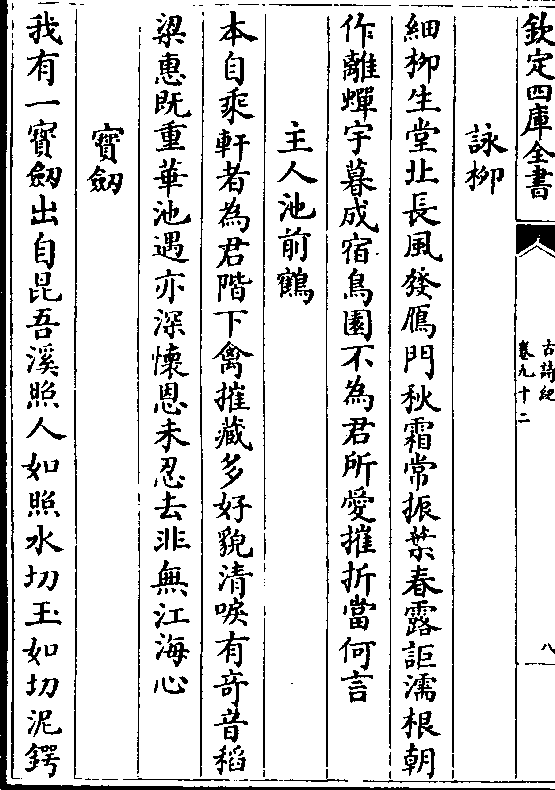 欽定四庫全書
古詩紀
卷九十二
八
詠栁
細栁生堂北長風發鴈門秋霜常振葉春露詎濡根朝
作離蟬宇暮成宿鳥園不為君所愛摧折當何言
主人池前鶴
本自乘軒者為君階下禽摧藏多好貌清唳有竒音稻
梁惠既重華池遇亦深懷恩未忍去非無江海心
寳劒
我有一寳劒出自昆吾溪照人如照水切玉如切泥鍔